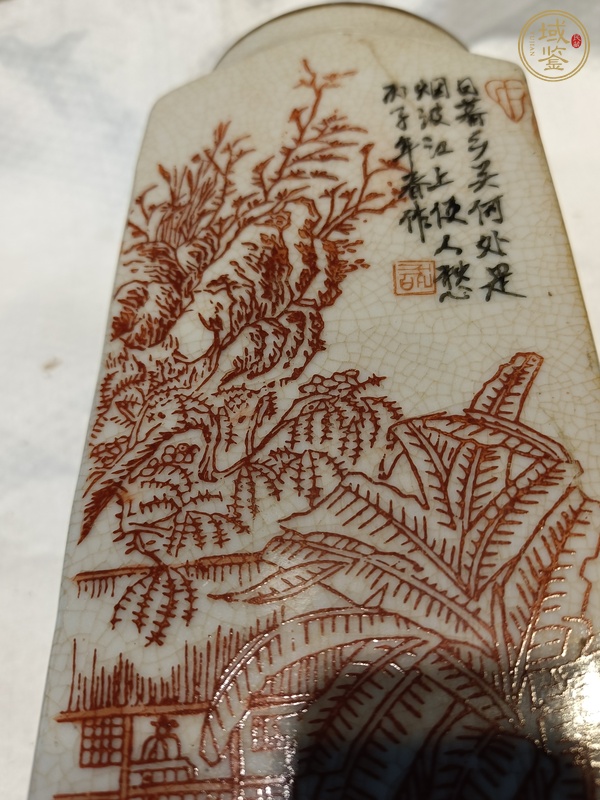 日暮乡关何处是
烟波江上使人愁
丙子年春作
域鉴